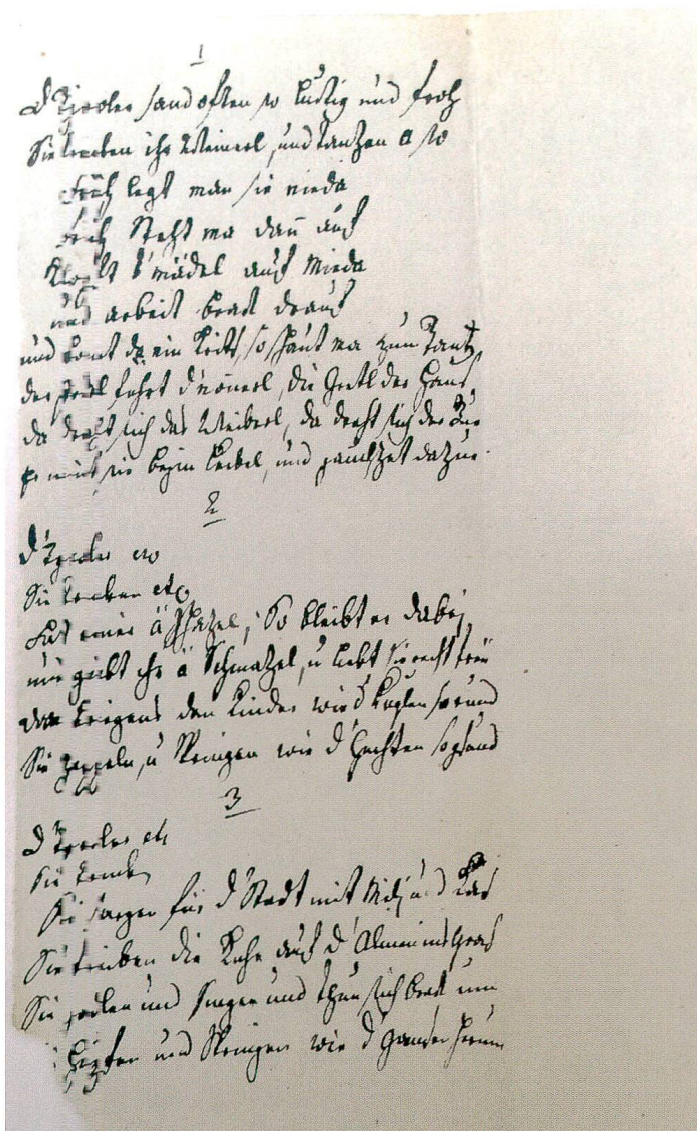 1
D Tiroler sand often so lustig und froh
Sie trinken ihr Weinerl, und tanzen a so
Früh legt man sie nieda
Früh steht ma dan auf
Klopft s'mädel aufs Mieda
und arbeit brav drauf
und komt ein so schaut ma zum Tantz
der führt d'nannerl, die Gretl der Hans
da draht sich das Weiberl, da draht sich der Bue
er nimt sie beym Leibel, und jauchzet dazue.
2
D'Tyroler etc
Sie trinken etc
Hat einer ä Schazel, so bleibt er dabei
und giebt ihr ä Schmatzel, u liebt sie recht treu
dan kriegens den Kinder wie d'Kuglen so rund
Sie zappeln, u springen wie d'Hechten so gsund
3
D Tyroler etc
Sie trinken
Sie sorgen für d'Stadt mit Milj und Kas
Sie treiben die Kuhe auf d'Almen ins Gras
Sie jodlen und singen und thun sich brav um
hupfen und springen wie d'Gamsen herum